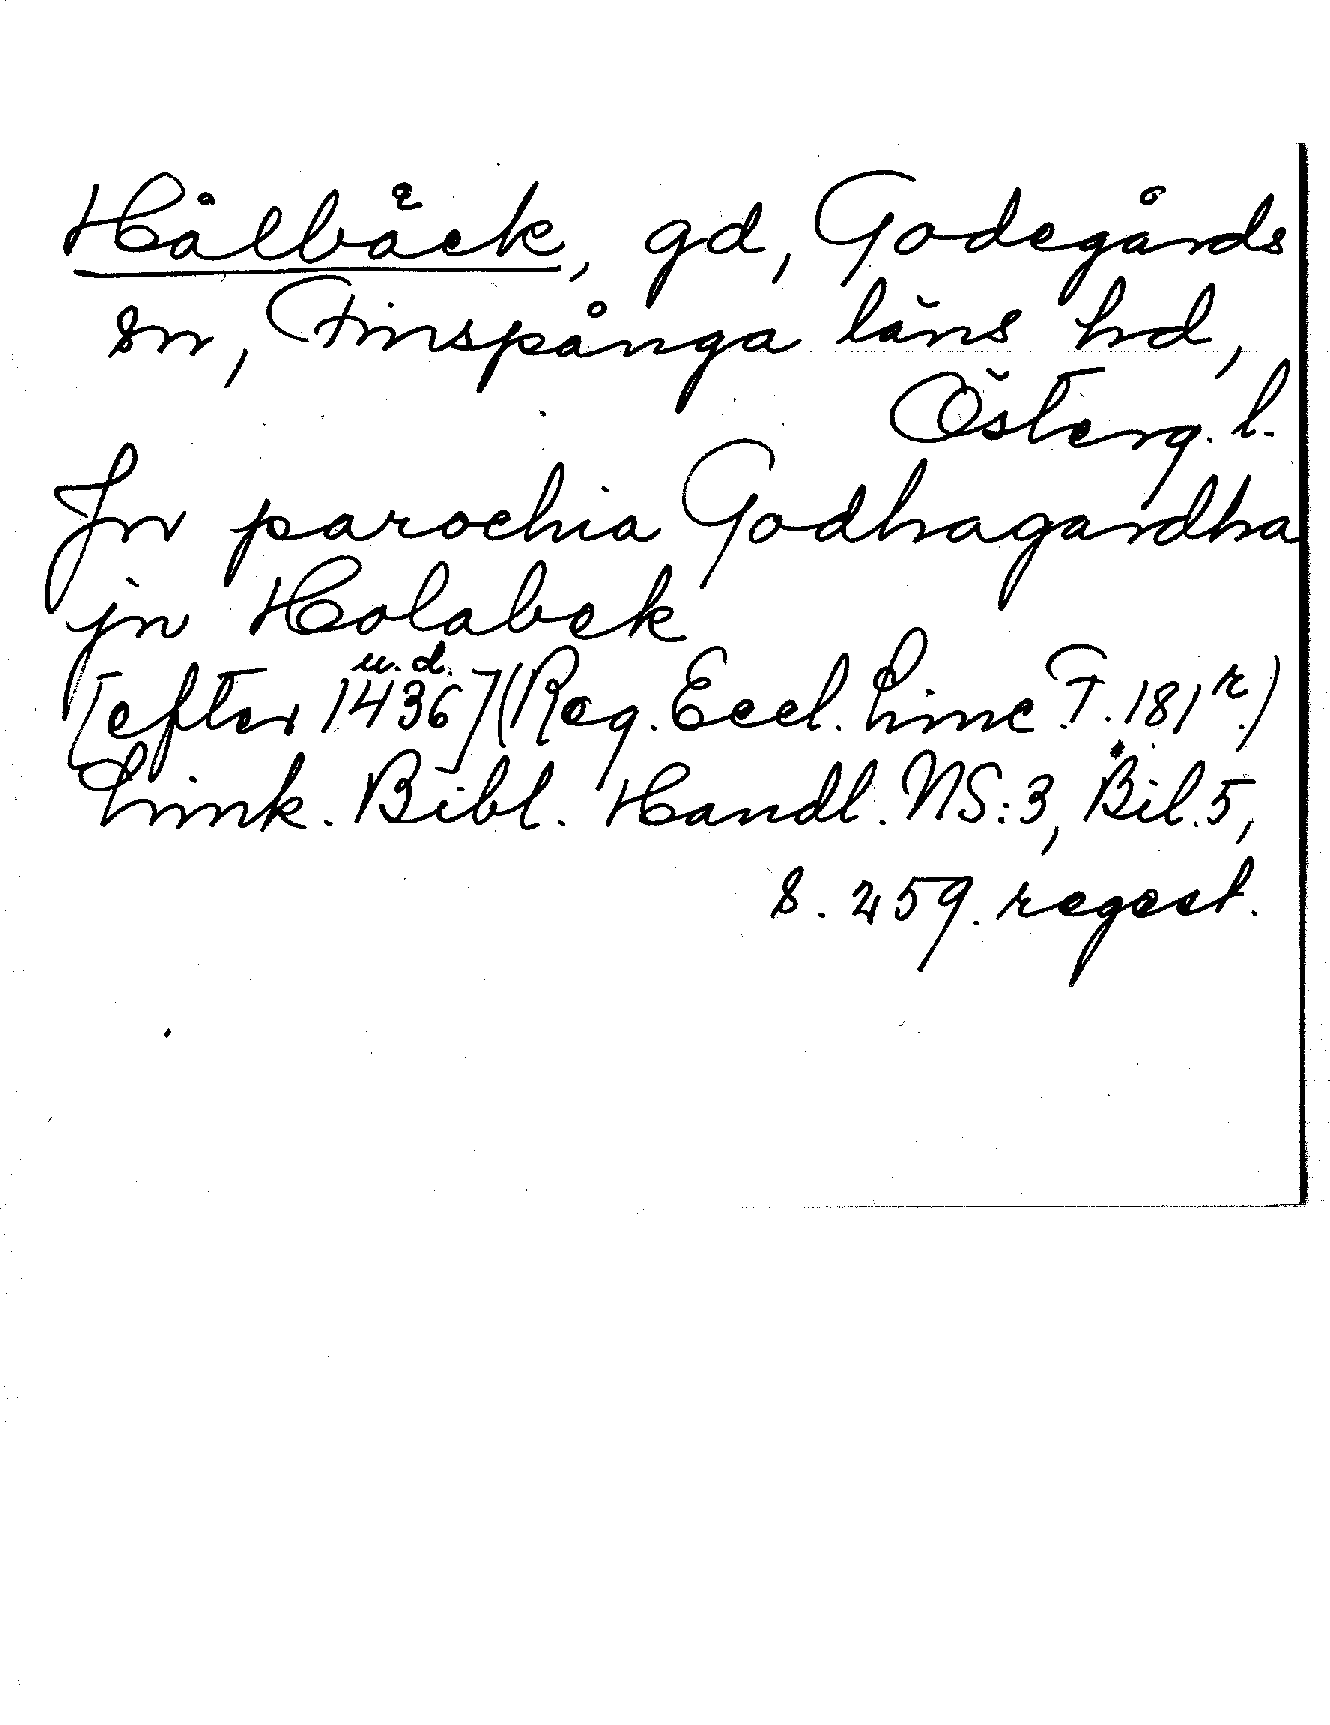 Hålbäck, gd, Godegårds
sn, Finspånga läns hd,
Österg. l.
Jn parochia Godhagardha
jn Holabek
u. d.
[efter 1436] (Reg. Eccl. Linc F. 181r.)
Link. Bibl. Handl. NS:3, Bil. 5,
s. 259. regest.